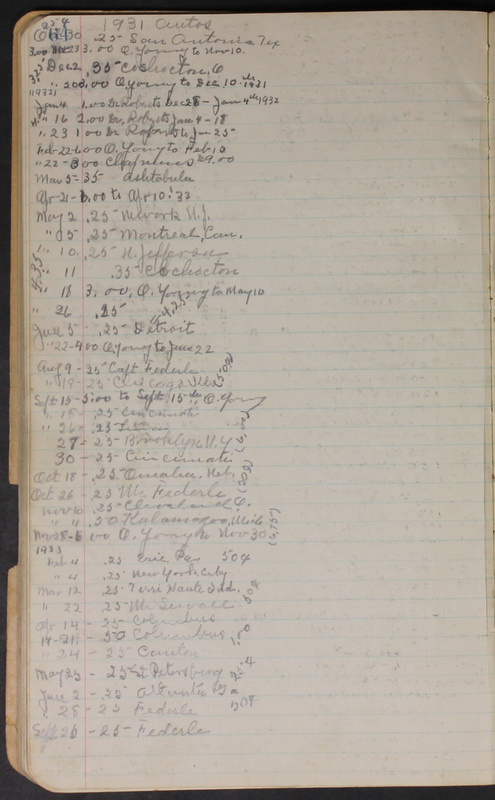 1931 Autos
.25 San Antonio Tex
3.00 Dec 23 3.00 O. Young to Nov 10.
Dec 2 .35 Coshocton, O
" 5.00, 00 O Young to Dec 10th 1931
Jan 4 1.00 Dr Roberts Dec 28 - Jan 4th 1932
" 16 2.00 Dr. Roberts June 4 - 18
" 23 1 00 Dr Roberts to Jan 25
Feb 22 - 6.00 O. Young to Feb 10
" 22 - 8 00 29.00
Mar 5 - 35 Ashtabula
Apr 21 - 6.00 to Apr 10! 32
May 2 .25 Newark N.J.
" 05 .25 Montreal, Can.
" 10 .25 N. Jefferson
11 .35 Coshocton
" 18 3.00, O. Young to May 10
" 26 .25
June 5 .25 Detroit
" 22 - 4 00 O Young to June 22
Aug 9 - 25 Capt Federle
" 19 - 25 Chicago Ills
Sept 15 - 5:00 to Sept 15th O. Young
" 18 - .25 Cincinnati
" 26 - .25
27 - 25 Brooklyn N.Y
30 - 25 Cincinnati
Oct 18 - .25 Omaha, Neb.
Oct 26 - 25 Mr. Federle
Nov 10 .25 Cleveland O.
" " .50 Kalamazoo, Mich
Nov 28 - 6 00 O. Young to Nov 30.
(3,75)
1933
Feb 4 .25 Erie Pa 504
" 4 .25 New York City
Mar 12 .25 Terre Haute Ind.
" 22 .25 Mr Sewall
504
Apr 14 - 25 Columbus
14-21 - 50 Columbus
1.00
" 24 - 25 Canton
May 23 - 25 St Petersburg
June 2 - .25 Atlanta Ga
" 28 - 25 Federle
Sept 26 - 25 - Federle